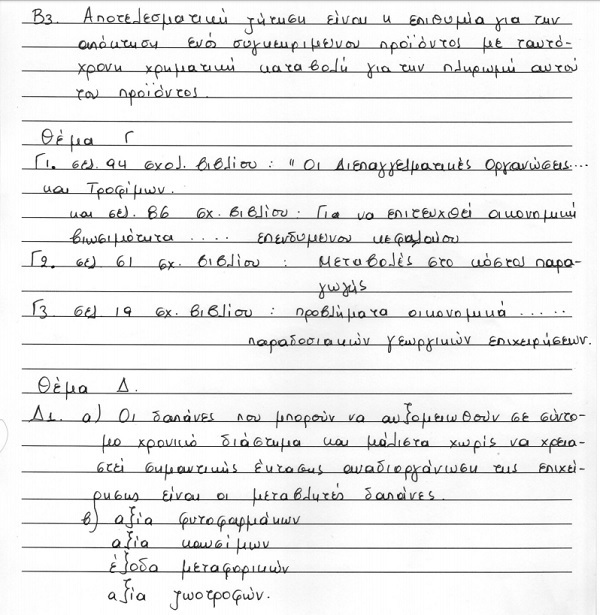 Β3. Αποτελεσματική ζήτηση είναι η επιθυμία για την
απόκτηση ενός συγκεκριμένου προϊόντος με ταυτό-
χρονη χρηματική καταβολή για την πληρωμή αυτού
του προϊόντος.
Θέμα Γ
Γ1. σελ. 94 σχολ. βιβλίου : "Οι Διεπαγγελματικές Οργανώσεις...
και Τροφίμων.
και σελ. 86 σχ. βιβλίου: Για να επιτευχθεί οικονομική
βιωσιμότητα .... επενδυμένου κεφαλαίου
Γ2. σελ 61 σχ. βιβλίου : Μεταβολές στο κόστος παρα-
γωγής
Γ3 σελ 19 σχ. βιβλίου : προβλήματα οικονομικά .....
παραδοσιακών γεωργικών επιχειρήσεων.
Θέμα Δ.
Δ1. α) Οι δαπάνες που μπορούν να αυξομειωθούν σε σύντο-
μο χρονικό διάστημα και μάλιστα χωρίς να χρεια-
στεί σημαντικής έντασης αναδιοργάνωση της επιχεί-
ρησης είναι οι μεταβλητές δαπάνες.
β) αξία φυτοφαρμάκων
αξία καυσίμων
έξοδα μεταφορικών
αξία ζωοτροφών.